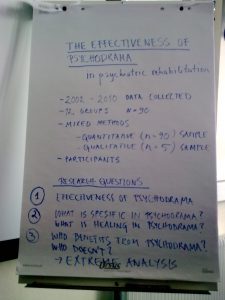 THE EFFECTIVENESS OF
PSYCHODRAMA
in psychiatric rehabilitation
- 2002 - 2010 DATA COLLECTED
- 12 GROUPS n=90
- MIXED METHODS
- QUANTITATIVE (n=90) SAMPLE
- QUALITATIVE (n=5) SAMPLE
- PARTICIPANTS
RESEARCH QUESTIONS
1 EFFECTIVENESS OF PSYCHODRAMA
2 WHAT IS SPECIFIC IN PSYCHODRAMA?
WHAT IS HEALING IN PSYCHODRAMA?
3 WHO BENEFITS FROM PSYCHODRAMA?
WHO DOESN'T?
→ EXTREME ANALYSIS